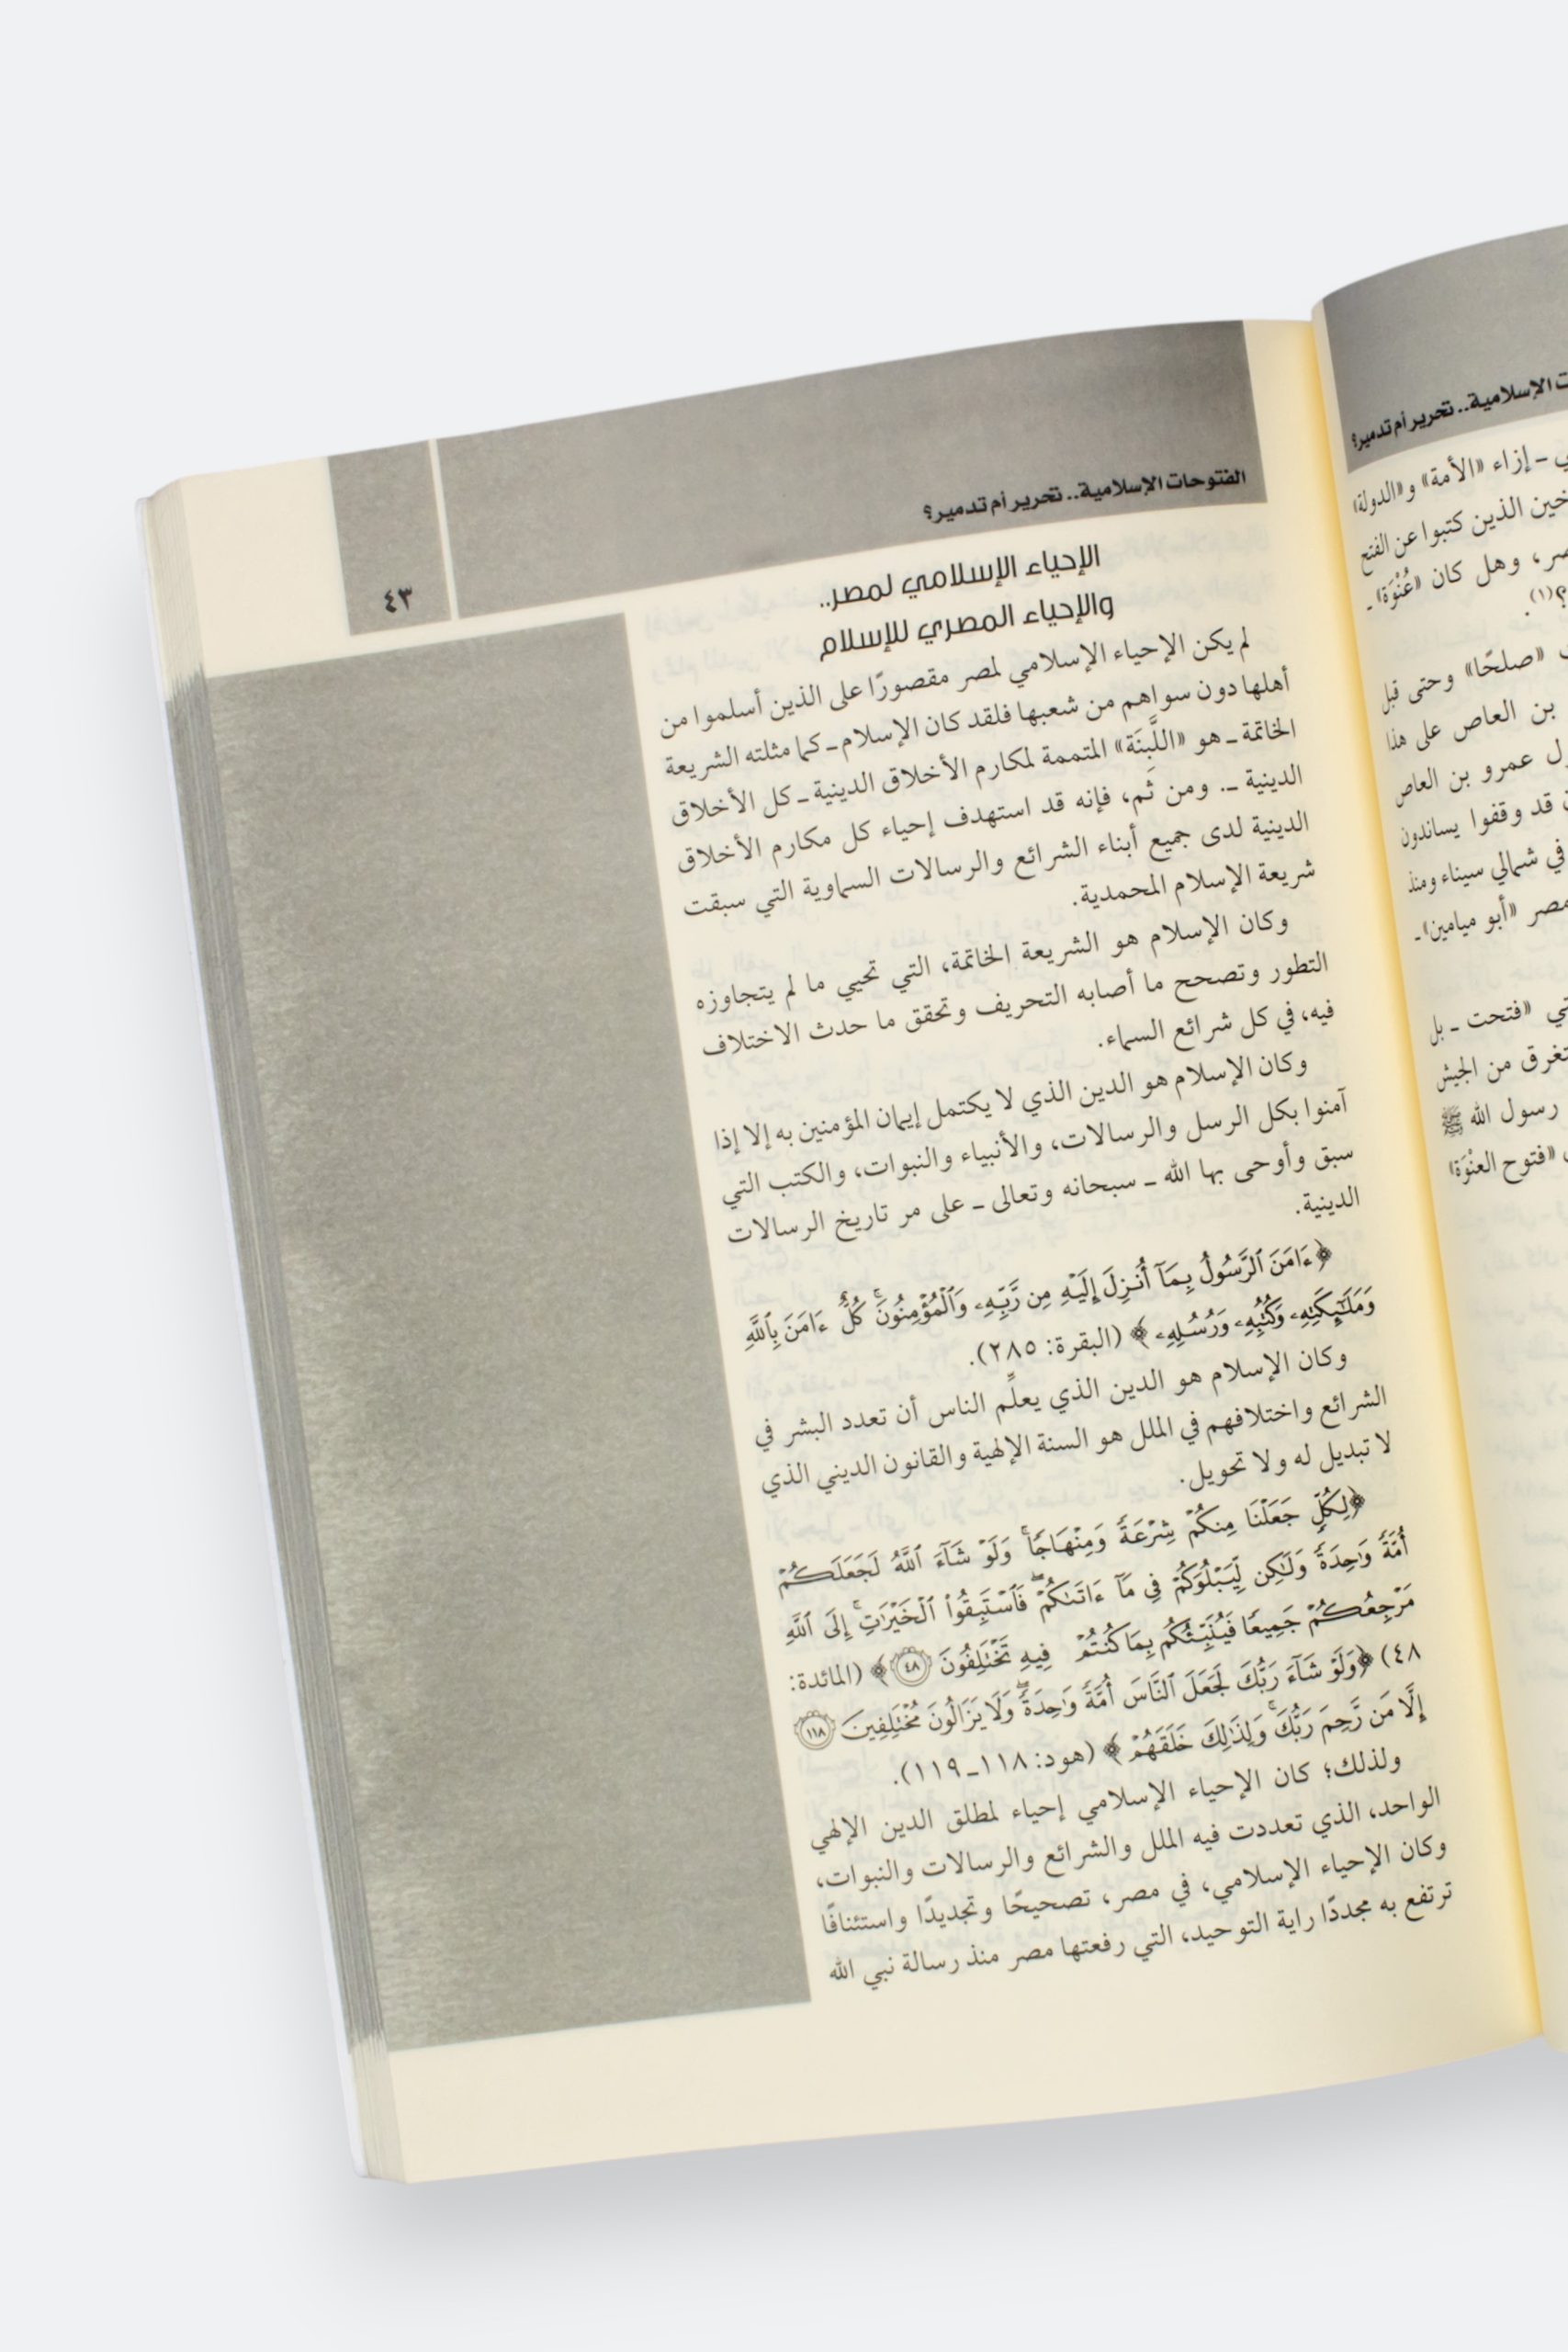 ت الإسلامية.. تحرير أم تدمير؟
ي ـ إزاء «الأمة» و«الدولة»
خين الذين كتبوا عن الفتح
صر، وهل كان «عُنْوَة» ـ
؟(١).
«صلحًا» وحتى قبل
بن العاص على هذا
ل عمرو بن العاص
قد وقفوا يساندون
في شمالي سيناء ومنذ
مصر «أبو ميامين» ـ
تي «فتحت ـ بل
تغرق من الجيش
رسول الله ﷺ
«فتوح العنْوَة»
الفتوحات الإسلامية.. تحرير أم تدمير؟
٤٣
الإحياء الإسلامي لمصر..
والإحياء المصري للإسلام
لم يكن الإحياء الإسلامي لمصر مقصورًا على الذين أسلموا من
أهلها دون سواهم من شعبها فلقد كان الإسلام ـ كما مثلته الشريعة
الخاتمة ـ هو «اللَّبِنَة» المتممة لمكارم الأخلاق الدينية ـ كل الأخلاق
الدينية ـ. ومن ثَم، فإنه قد استهدف إحياء كل مكارم الأخلاق
الدينية لدى جميع أبناء الشرائع والرسالات السماوية التي سبقت
شريعة الإسلام المحمدية.
وكان الإسلام هو الشريعة الخاتمة، التي تحيي ما لم يتجاوزه
التطور وتصحح ما أصابه التحريف وتحقق ما حدث الاختلاف
فيه، في كل شرائع السماء.
وكان الإسلام هو الدين الذي لا يكتمل إيمان المؤمنين به إلا إذا
آمنوا بكل الرسل والرسالات، والأنبياء والنبوات، والكتب التي
سبق وأوحى بها الله ـ سبحانه وتعالى ـ على مر تاريخ الرسالات
الدينية.
﴿ءَامَنَ ٱلرَّسُولُ بِمَآ أُنزِلَ إِلَيْهِ مِن رَّبِّهِۦ وَٱلْمُؤْمِنُونَۚ كُلٌّ ءَامَنَ بِٱللَّهِ
وَمَلَٰٓئِكَتِهِۦ وَكُتُبِهِۦ وَرُسُلِهِۦ﴾ (البقرة: ٢٨٥).
وكان الإسلام هو الدين الذي يعلِّم الناس أن تعدد البشر في
الشرائع واختلافهم في الملل هو السنة الإلهية والقانون الديني الذي
لا تبديل له ولا تحويل.
﴿لِكُلٍّ جَعَلْنَا مِنكُمْ شِرْعَةً وَمِنْهَاجًاۚ وَلَوْ شَآءَ ٱللَّهُ لَجَعَلَكُمْ
أُمَّةً وَٰحِدَةً وَلَٰكِن لِّيَبْلُوَكُمْ فِى مَآ ءَاتَىٰكُمْۖ فَٱسْتَبِقُوا۟ ٱلْخَيْرَٰتِۚ إِلَى ٱللَّهِ
مَرْجِعُكُمْ جَمِيعًا فَيُنَبِّئُكُم بِمَا كُنتُمْ فِيهِ تَخْتَلِفُونَ ٤٨﴾ (المائدة:
٤٨) ﴿وَلَوْ شَآءَ رَبُّكَ لَجَعَلَ ٱلنَّاسَ أُمَّةً وَٰحِدَةًۖ وَلَا يَزَالُونَ مُخْتَلِفِينَ ١١٨
إِلَّا مَن رَّحِمَ رَبُّكَۚ وَلِذَٰلِكَ خَلَقَهُمْ﴾ (هود: ١١٨ـ١١٩).
ولذلك؛ كان الإحياء الإسلامي إحياء لمطلق الدين الإلهي
الواحد، الذي تعددت فيه الملل والشرائع والرسالات والنبوات،
وكان الإحياء الإسلامي، في مصر، تصحيحًا وتجديدًا واستئنافًا
ترتفع به مجددًا راية التوحيد، التي رفعتها مصر منذ رسالة نبي الله